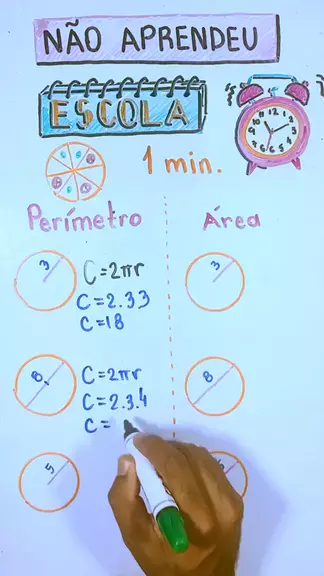 NÃO APRENDEU
ESCOLA
1 min.
Perímetro
Área
3
C=2πr
C=2.33
C=18
3
8
C=2πr
C=2.3.4
C=
8
5